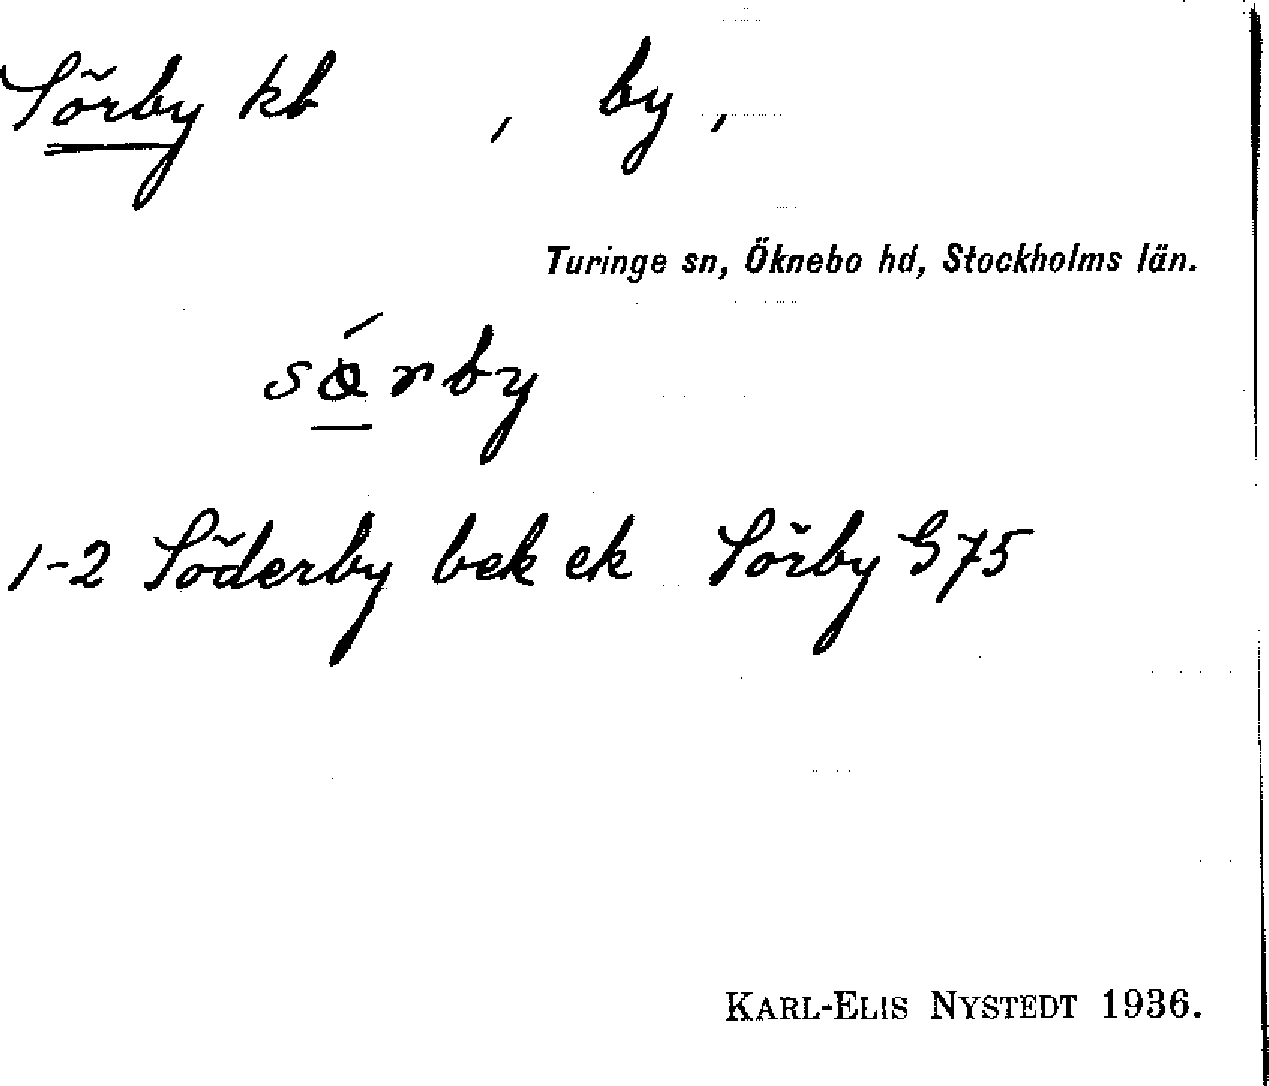 Sörby kb , by ,
Turinge sn, Öknebo hd, Stockholms län.
sɷ́rby
1-2 Söderby bek ek Sörby G75
KARL-ELIS NYSTEDT 1936.